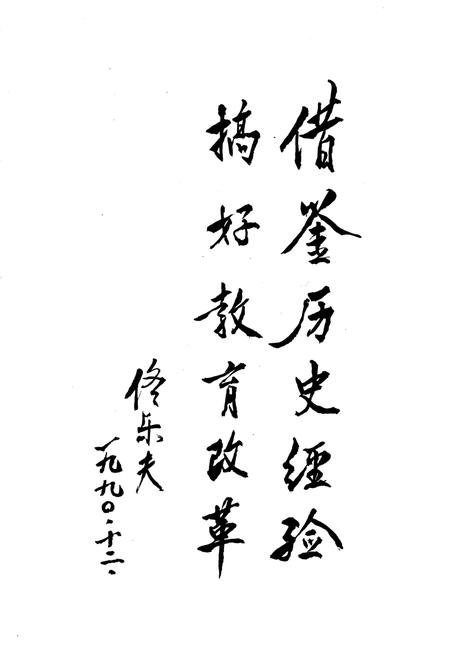 借鉴历史經验
搞好教育改革
佟乐夫
一九九〇·十二·